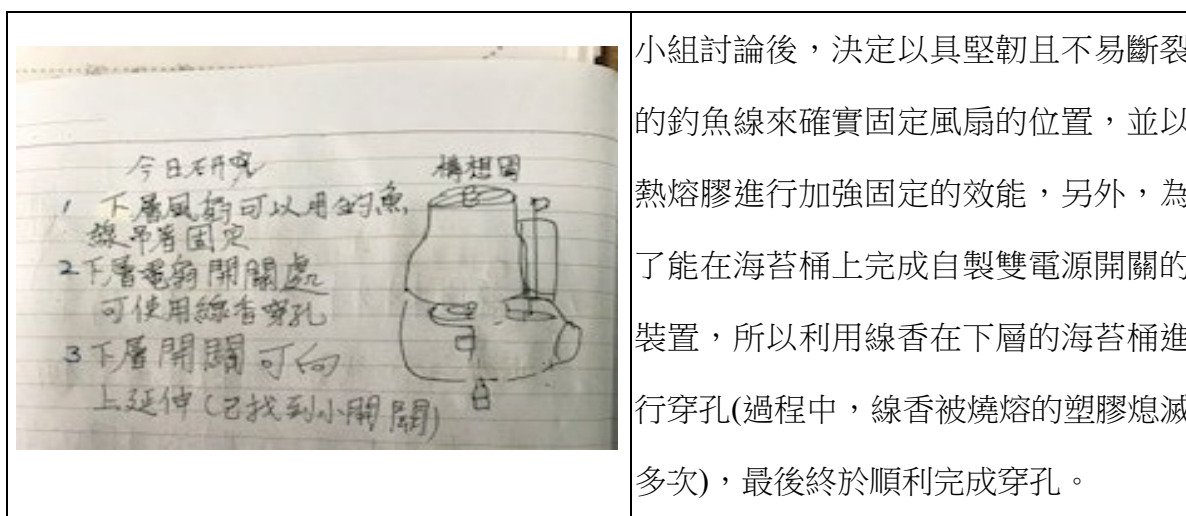 今日研究
構想圖
1 下層風扇可以用釣魚
線吊著固定
2 下層電扇開關處
可使用線香穿孔
3 下層開關可向
上延伸(已找到小開關)
小組討論後，決定以具堅韌且不易斷裂
的釣魚線來確實固定風扇的位置，並以
熱熔膠進行加強固定的效能，另外，為
了能在海苔桶上完成自製雙電源開關的
裝置，所以利用線香在下層的海苔桶進
行穿孔(過程中，線香被燒熔的塑膠熄滅
多次)，最後終於順利完成穿孔。